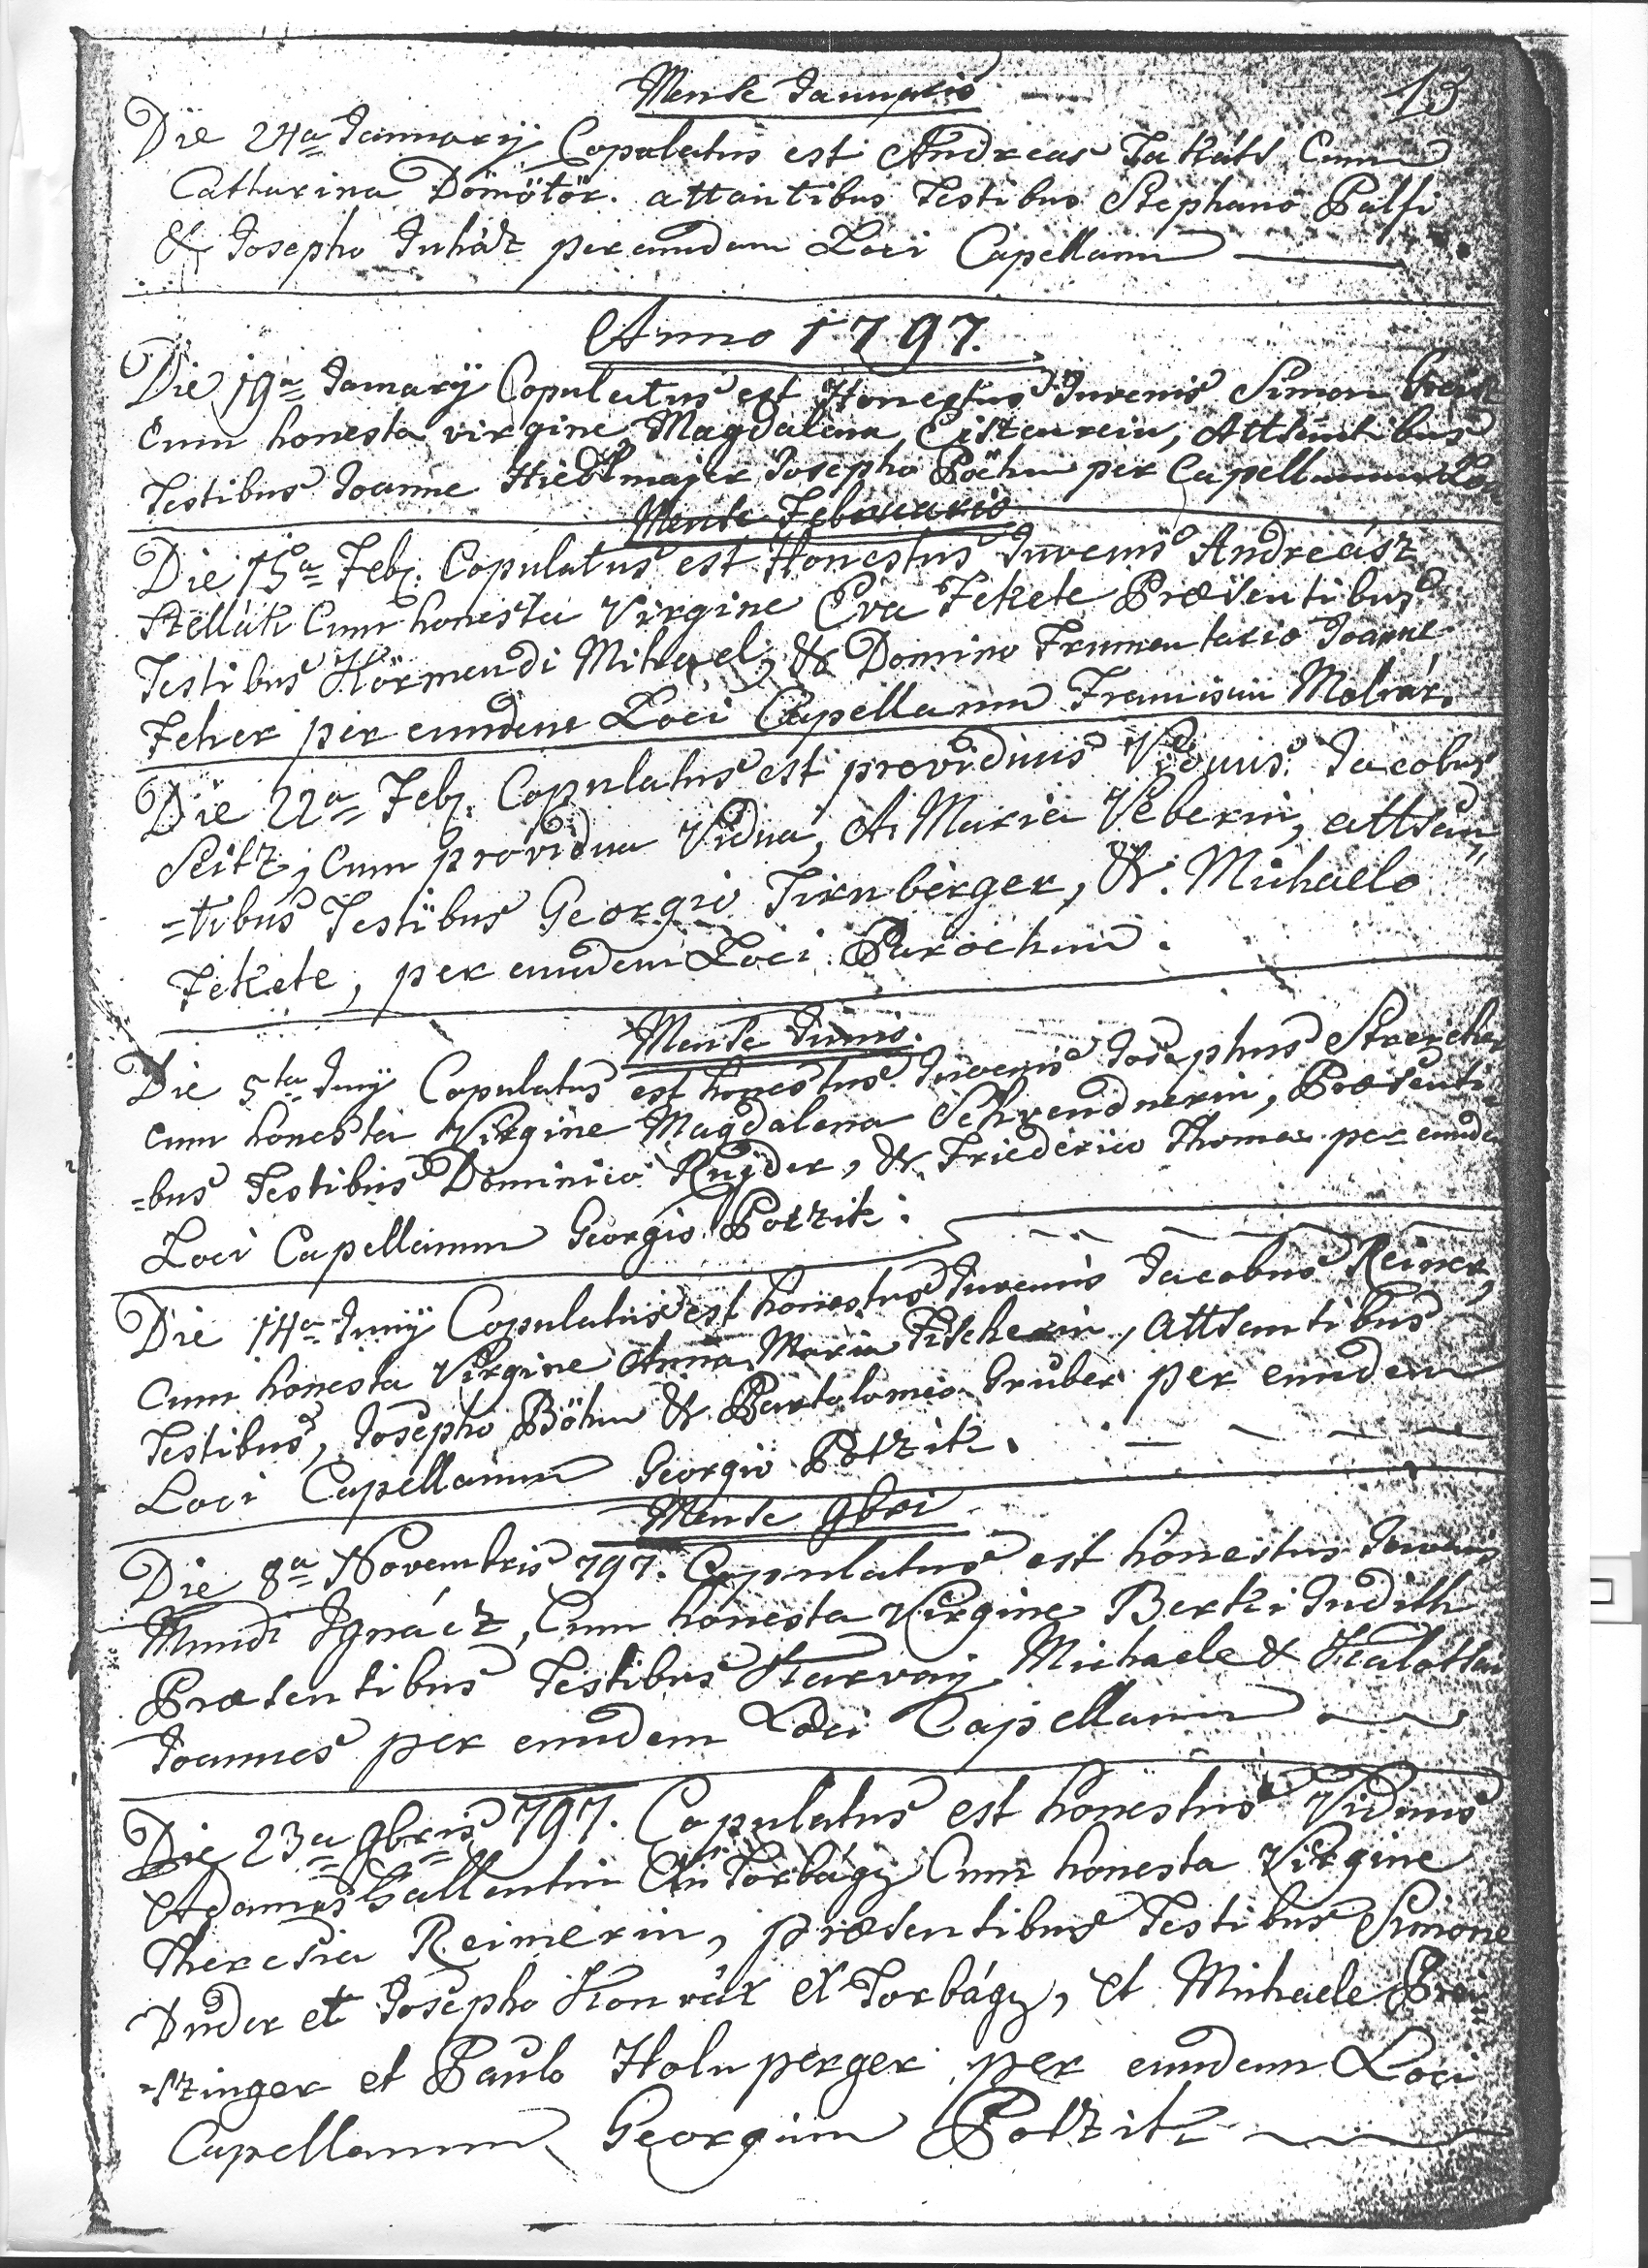 13
Mense Januario
Die 24a January Copulatus est Andreas Takáts Cum
Catharina Dömötör. attantibus Testibus Stephano Palfi
& Josepho Juhár per eundem Loci Capellanum
Anno 1797.
Die 19a January Copulatus est Honestus Juvenis Simon
Cum honesta virgine Magdalena Attsantibus
Testibus Joanne Hiedlmajer Josepho Böhm per Capellanum
Mense Februario
Die 15a Feb. Copulatus est Honestus Juvenis Andreász
Szellák Cum honesta Virgine Eva Fekete Præsentibus
Testibus Körmendi Mihael, & Domino Frumentario Joanne
Feher per eundem Loci Capellanum Francisum Molnár.
Die 22a Feb. Copulatus est providuus Viduus. Jacobus
Seitz, Cum providua Vidua, A. Maria Veberin, attsan„
=tibus Testibus Georgio Tirnberger, &. Michaelo
Fekete, per eundem Loci Parochum.
Mense Junio.
Die 5ta Juny Copulatus est honestus Juvenis Josephus
cum honesta Virgine Magdalena Schvendnerin, Præsenti
=bus Testibus Dominico Rujder, & Friederico Thomas per eundem
Loci Capellanum Georgio Potzik.
Die 14a Juny Copulatus est honestus Juvenis Jacobus Reimer,
Cum honesta Virgine Anna Maria Fischerin, Attsantibus
Testibus, Josepho Böhm &. Bartolomeo Gruber per eundem
Loci Capellanum Georgio Potzik.
Mense 9bri
Die 8a Novembris 797. Copulatus est honestus Juvenis
Mundi Ignácz, Cum honesta Virgine Berki Judith
Præsentibus Testibus Michaele &
Joannes per eundem Loci Capellanum
Die 23a 9bris 797. Copulatus est honestus Viduus
Adamus Gallentin Ex Torbágy Cum honesta Virgine
Theresia Reimerin, præsentibus Testibus Simone
Duder et Josepho Konrár ex Torbágy, et Michaele
=szinger et Paulo Holnperger per eundem Loci
Capellanum Georgium Potzik